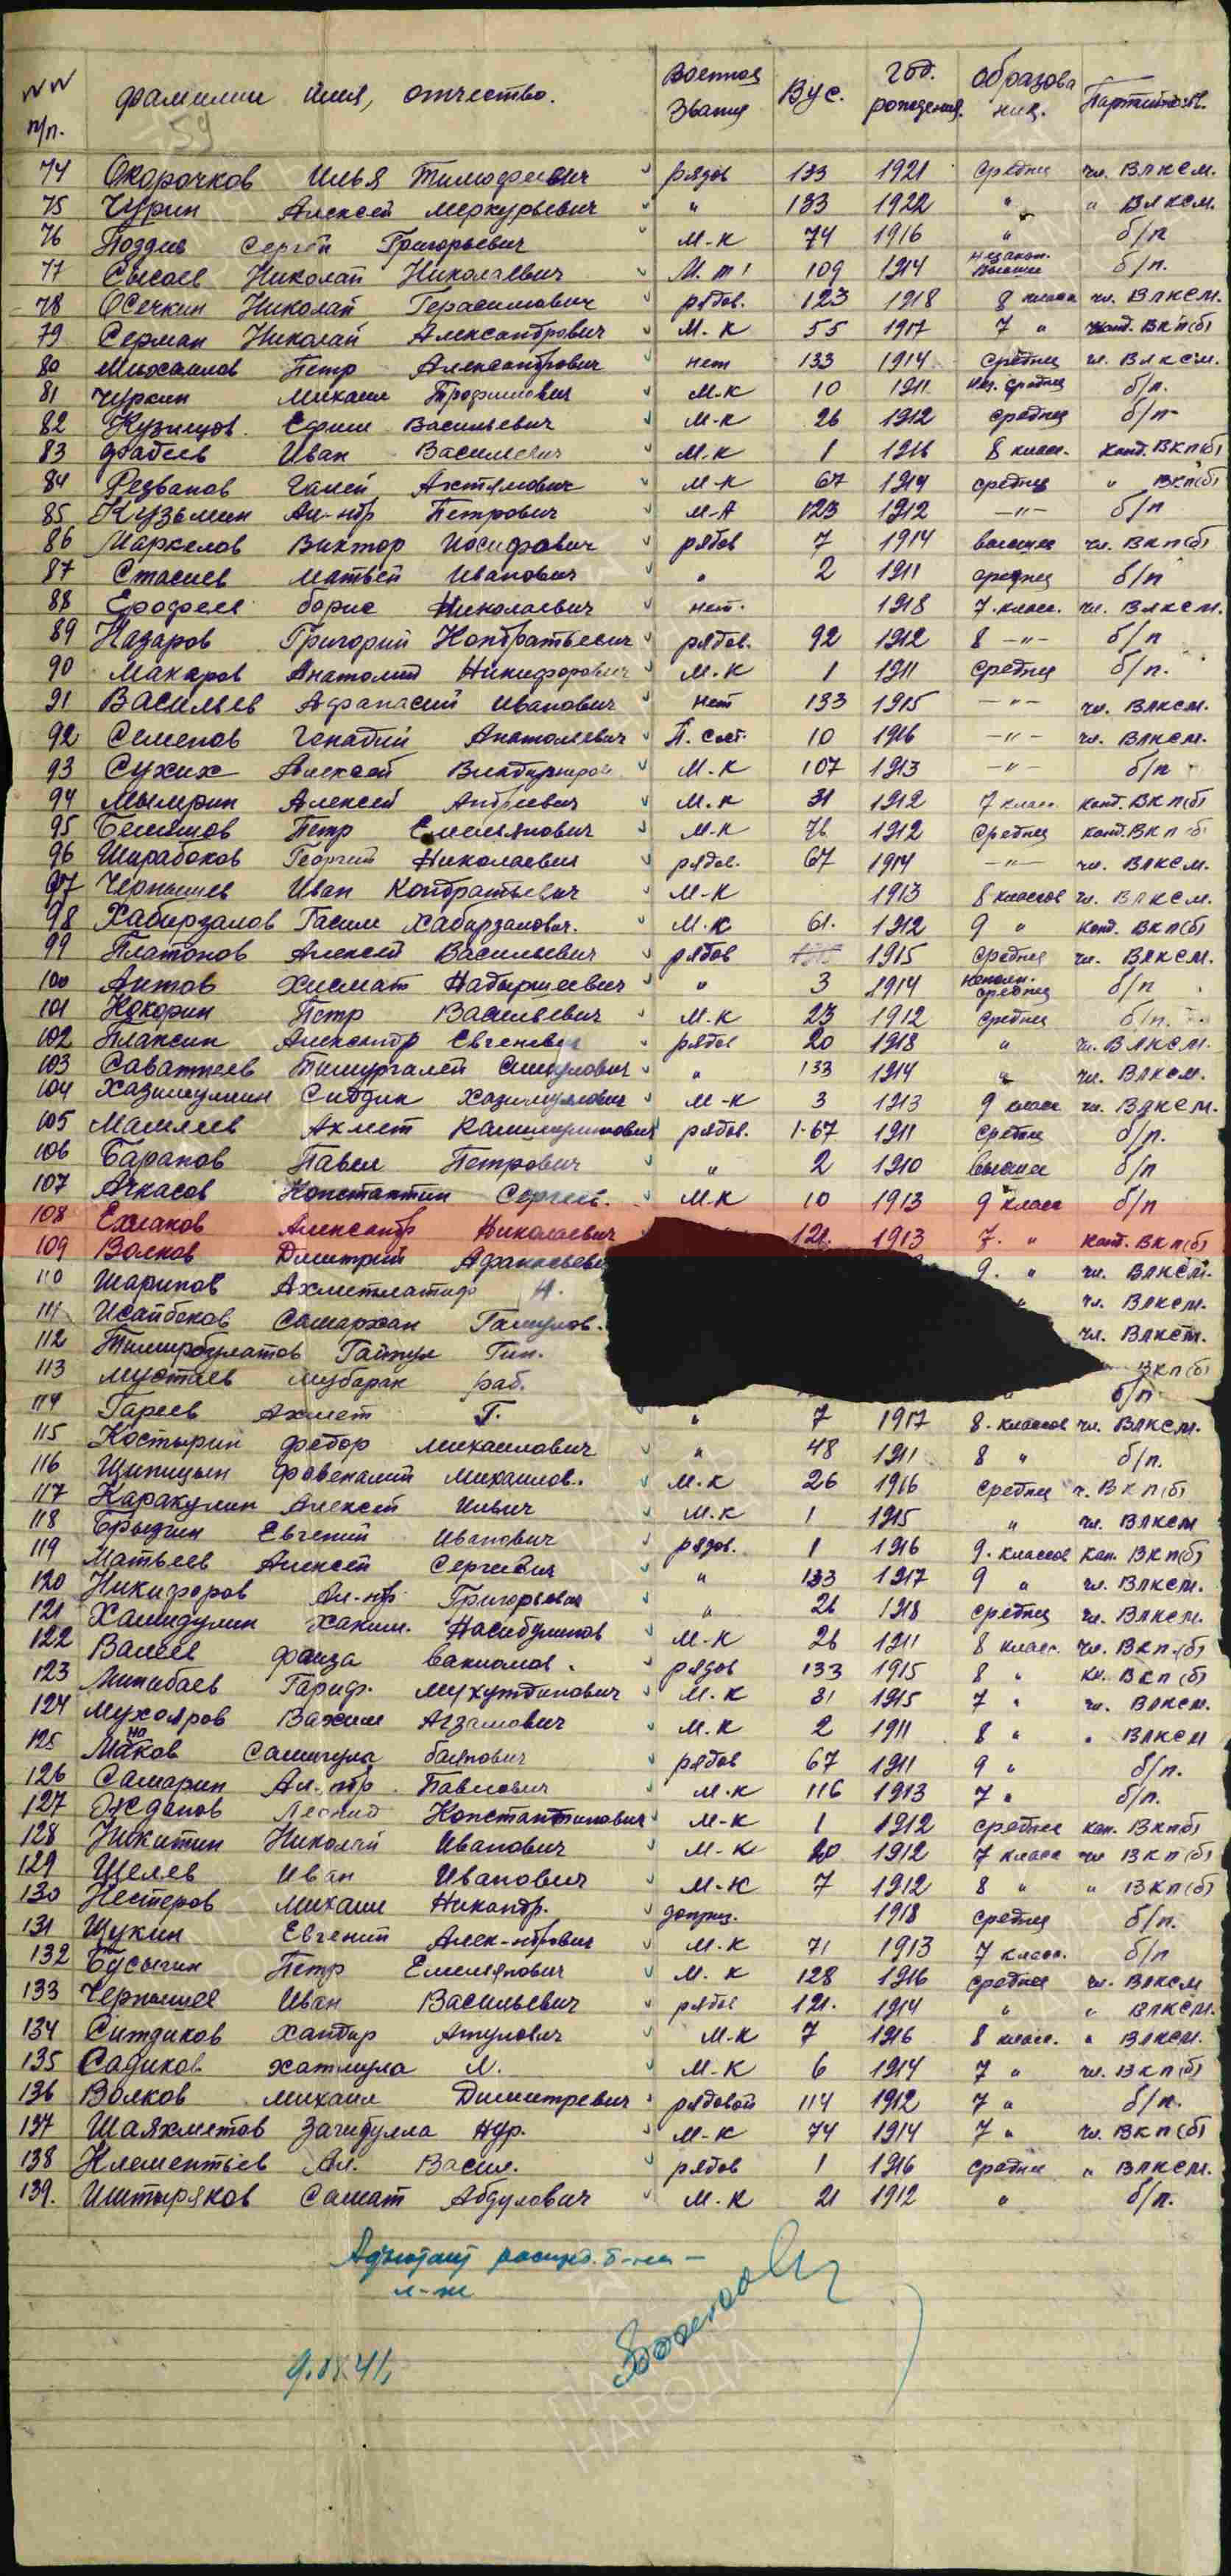 NN п/п. фамилии имя, отчество. Военное звание Вус. Год. рождения. Образование. Партийность.
59
74 Скорочков Илья Тимофеевич рядов 133 1921 средне чл. Влксм.
75 Чурин Алексей Меркурьевич " 133 1922 " " Влксм.
76 Поздив Сергей Григорьевич М-К 74 1916 " б/п
77 Сысоев Николай Николаевич М. т 109 1914 незакон. высшее б/п.
78 Осечкин Николай Герасимович рядов. 123 1918 8 класса чл. Влксм.
79 Серман Николай Александрович М. К 55 1917 7 " канд. Вкп(б)
80 Михаилов Петр Александрович нет 133 1914 средне чл. Влксм.
81 Чуркин Михаил Трофимович М-К 10 1911 средне б/п.
82 Кузнецов. Ефим Васильевич М-К 26 1912 средне б/п-
83 Фадеев Иван Васильевич М-К 1 1916 8 класс. канд. Вкп(б)
84 Резванов Галей Ахтямович М-К 67 1914 средне " Вкп(б)
85 Кузьмин Ал-ндр Петрович М-К 123 1912 -"- б/п
86 Маркелов Виктор Иосифович рядов 7 1914 высшее чл. Вкп(б)
87 Стасиев Матвей Иванович " 2 1911 средне б/п
88 Ерофеев Борис Николаевич нет. 1918 7. класс. чл. Влксм.
89 Назаров Григорий Кондратьевич рядов. 92 1912 8 -"- б/п
90 Макаров Анатолий Никифорович М-К 1 1911 средне б/п.
91 Васильев Афанасий Иванович нет 133 1915 -"- чл. Влксм.
92 Семенов Генадий Анатольевич П. сост. 10 1916 -"- чл. Влксм.
93 Сухих Алексей Владимиров М. К 107 1913 -"- б/п
94 Мымрин Алексей Андреевич М. К 31 1912 7 класс. канд. Вкп(б)
95 Петр Емельянович М-К 76 1912 средне канд. Вкп(б)
96 Ширабоков Георгий Николаевич рядов. 67 1914 -"- чл. Влксм.
97 Чернышев Иван Кондратьевич М-К 1913 8 классов чл. Влксм.
98 Хабирзалов Гасим Хабирзалович. М. К 61. 1912 9 " канд. Вкп(б)
99 Платонов Алексей Васильевич рядов 1915 средне чл. Влксм.
100 Аитов Хисмат " 3 1914 неполн. средне б/п
101 Кокорин Петр Васильевич М. К 23 1912 средне б/п.
102 Плаксин Александр Евгеневич рядов 20 1918 " чл. Влксм.
103 Саватнеев Тимургалей " 133 1914 " чл. Влксм.
104 Хазимуллин Сибдик Хазимуллович М-К 3 1913 9 класс чл. Влксм.
105 Мамлеев Ахмет рядов. 1-67 1911 средне б/п.
106 Баранов Павел Петрович " 2 1910 высшее б/п
107 Ачкасов Константин Сергеев. М-К 10 1913 9 класс б/п
108 Ехлаков Александр Николаевич 121. 1913 7. " канд. Вкп(б)
109 Волков Дмитрий Афанасьеви 9. " чл. Влксм.
110 Шарипов Ахметлатиф А. " чл. Влксм.
111 Исайбеков Самархан чл. Влксм.
112 Тимирбулатов Гайнул Гип. Вкп(б)
113 Мустаев Мубарак Раб. б/п
114 Гареев Ахмет Г. " 7 1917 8. классов чл. Влксм.
115 Костырин Федор Михаилович " 48 1911 8 " б/п.
116 Щипицын Фавеналий Михаилов. М-К 26 1916 средне ч. Вкп(б)
117 Каракулин Алексей Ильич М. К 1 1915 " чл. Влксм
118 Брызгин Евгений Иванович рядов. 1 1916 9. классов кан. Вкп(б)
119 Матвеев Алексей Сергеевич " 133 1917 9 " чл. Влксм.
120 Никифоров Ал-ндр Григорьевич " 26 1918 средне чл. Влксм.
121 Хамидулин Хаким. Насибулинов М-К 26 1911 8 класс. чл. Вкп(б)
122 Валеев Фаиза рядов 133 1915 8 " кн. Вкп(б)
123 Минибаев Гариф. Мухутдинович М. К 31 1915 7 " чл. Влксм.
124 Мухояров Вахим Агзамович М. К 2 1911 8 " " Влксм
125 Манаков Самигула Баянович рядов 67 1911 9 " б/п.
126 Самарин Ал-ндр Павлович М. К 116 1913 7 " б/п.
127 Ожданов Леонид Константинович М-К 1 1912 средне кан. Вкп(б)
128 Никитин Николай Иванович М-К 20 1912 7 класса чл Вкп(б)
129 Щелев Иван Иванович М-К 7 1912 8 " " Вкп(б)
130 Нестеров Михаил Никандр. доприз. 1918 средне б/п.
131 Щукин Евгений Алек-ндрович М. К 71 1913 7 класса. б/п
132 Бусыгин Петр Емельянович М. К 128 1916 средне чл. Влксм
133 Чернышев Иван Васильевич рядов 121. 1914 " " Влксм.
134 Ситдиков Хандир Атулович М-К 7 1916 8 класс. " Влксм.
135 Садиков Хатмула Л. М-К 6 1914 7 " чл. Вкп(б)
136 Волков Михаил Димитревич рядовой 114 1912 7 " б/п.
137 Шаяхметов Загидулла Нур. М-К 74 1914 7 " чл. Вкп(б)
138 Клементьев Ал. Васил. рядов 1 1916 средне " Влксм.
139. Иштыряков Самат Абдулович М. К 21 1912 " б/п.
Адъютант распред. б-на -
л-т
41
ПАМЯТЬ НАРОДА